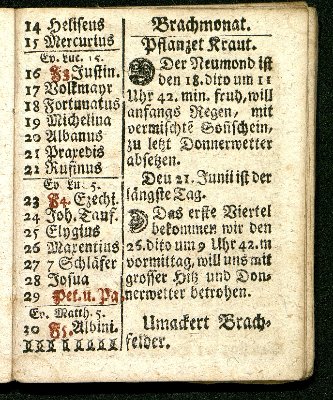 14 Heliseus
15 Mercurius
Ev. Luc. 15.
16 F3 Justin.
17 Volkmayr
18 Fortunatus
19 Michelina
20 Albanus
21 Praxedis
22 Rufinus
Ev. Lu. 5.
23 F4. Ezechi.
24 Joh. Tauf.
25 Elygius
26 Marentius
27 7 Schläfer
28 Josua
29 Pet. u. Pa
Ev. Matth. 5.
30 F5. Albini.
Brachmonat.
Pflanzet Kraut.
Der Neumond ist
den 18. dito um 11
Uhr 42. min. fruh, will
anfangs Regen, mit
vermischtē Soñschein,
zu letzt Donnerwetter
absetzen.
Den 21. Junii ist der
längste Tag.
Das erste Viertel
bekommen wir den
26. dito um 9 Uhr 42. m
vormittag, will uns mit
grosser Hitz und Don-
nerwetter betrohen.
Umackert Brach-
felder.